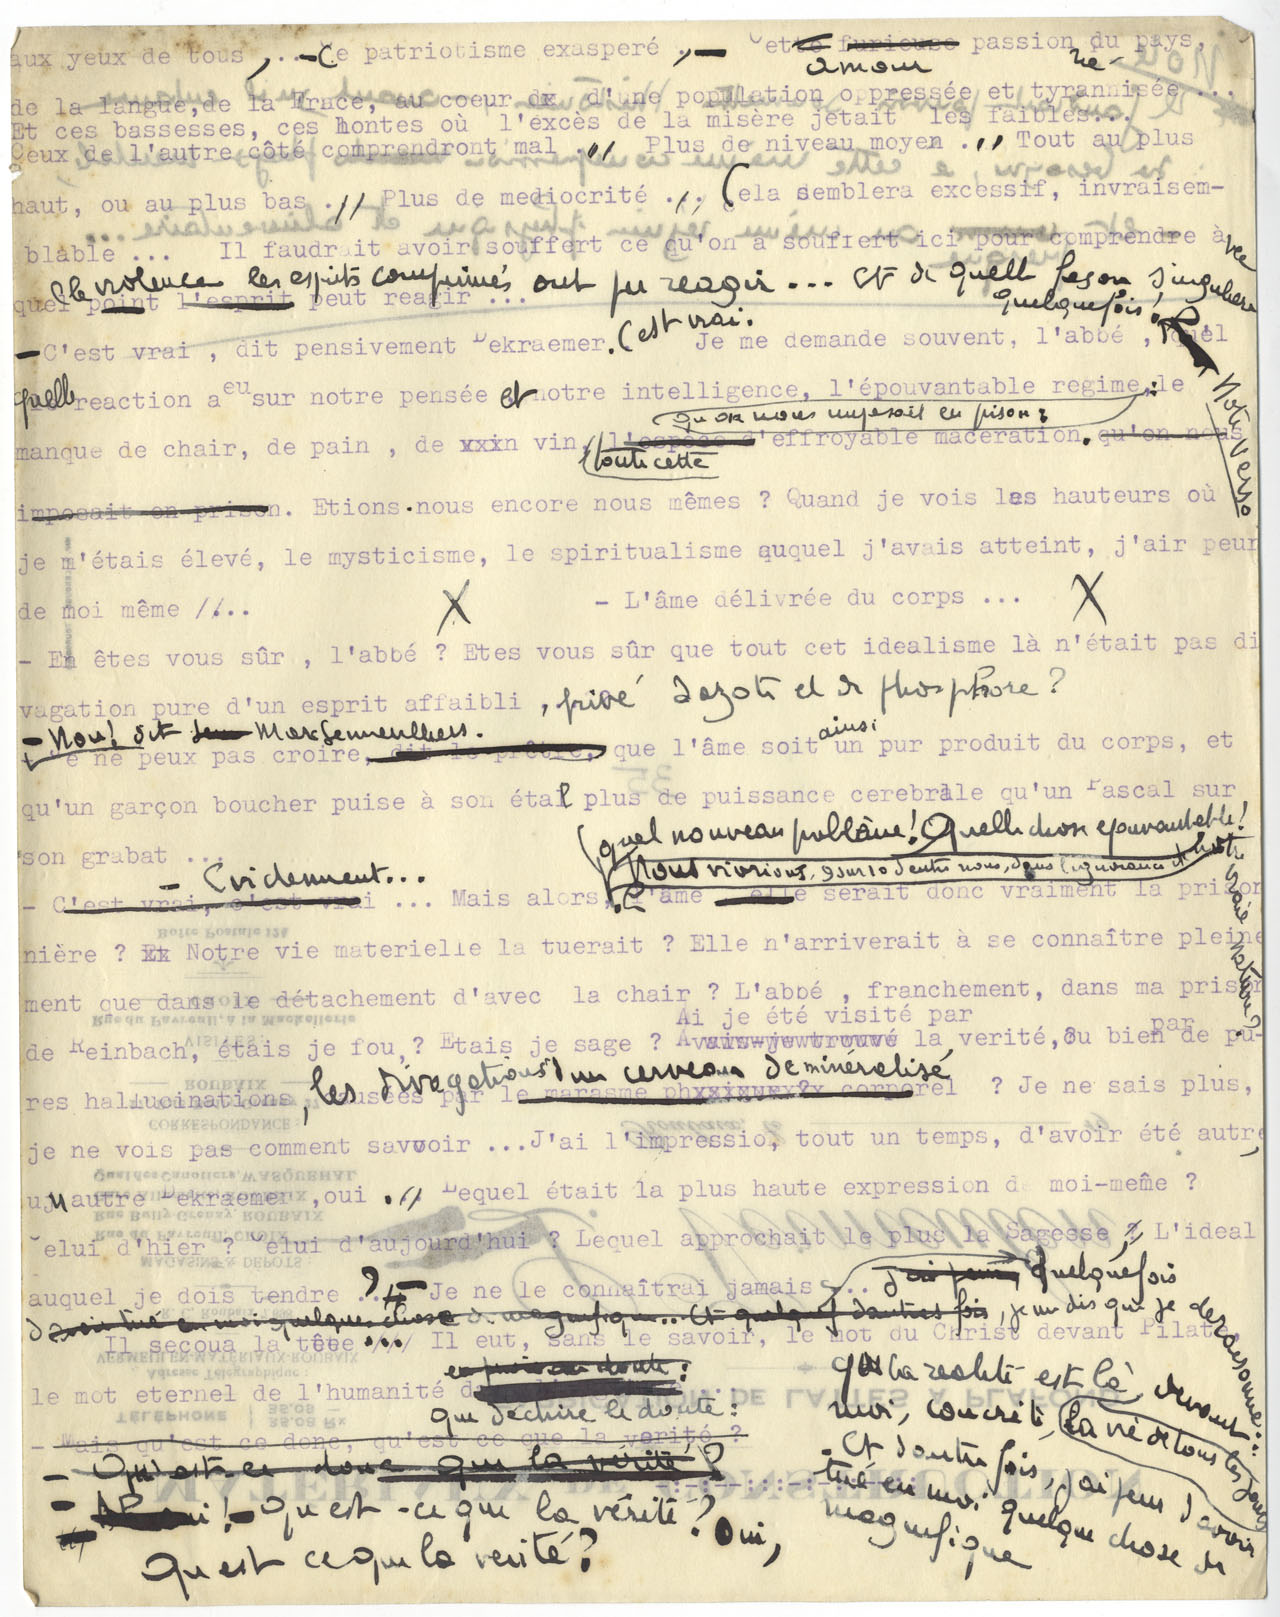 aux yeux de tous ,... -Ce patriotisme exasperé , — Cette furieuse passion du pays,
amour
re-
Note
de la langue,de la Frnce, au coeur dx d'une population oppressée et tyrannisée ...
Et ces bassesses, ces hontes où l'excès de la misère jetait les faibles...
Ceux de l'autre côté comprendront mal .,, Plus de niveau moyen .,, Tout au plus
haut, ou au plus bas .,, Plus de mediocrité .,, Cela semblera excessif, invraisem-
blable ... Il faudrait avoir souffert ce qu'on a souffert ici pour comprendre à
vec
quelle violence les esprits comprimés ont pu reagir... Et de quelle façon singulière
quelquefois !
quel point l'esprit peut reagir ...
-C'est vrai , dit pensivement Dekraemer. C'est vrai. Je me demande souvent, l'abbé , quel
Note verso
quelle reaction a eu sur notre pensée et notre intelligence, l'épouvantable regime,: le
qu'on nous imposait en prison ;
manque de chair, de pain , de xxxn vin, l'espèce d'effroyable maceration. qu'on nous
toute cette
imposait en prison. Etions-nous encore nous mêmes ? Quand je vois les hauteurs où
je m'étais élevé, le mysticisme, le spiritualisme auquel j'avais atteint, j'air peur
de moi même //.. X - L'âme délivrée du corps ... X
- En êtes vous sûr , l'abbé ? Etes vous sûr que tout cet idealisme là n'était pas di
vagation pure d'un esprit affaibli , privé d'azote et de phosphore ?
- Non! dit Marc Sennevilliers.
Je ne peux pas croire, dit le prêtre, que l'âme soit ainsi un pur produit du corps, et
qu'un garçon boucher puise à son étal plus de puissance cerebrale qu'un Pascal sur
son grabat ...
(quel nouveau problème! Quelle chose epouvantable!
Nous vivrions, 9 sur 10 d'entre nous, dans l'ignorance de notre vraie nature ?
- Evidemment...
- C'est vrai, c'est vrai ... Mais alors, l'âme elle serait donc vraiment la prison
nière ? Et Notre vie materielle la tuerait ? Elle n'arriverait à se connaître pleine
ment que dans le détachement d'avec la chair ? L'abbé , franchement, dans ma prison
Ai je été visité par
par
de Reinbach, étais je fou,? Etais je sage ? Avais-je trouvé la verité,ou bien de pu-
, les divagations d'un cerveau deminéralisé
res hallucinations causées par le marasme phxxixuxx?x corporel ? Je ne sais plus,
je ne vois pas comment savoir ...J'ai l'impressio, tout un temps, d'avoir été autre,
un autre Dekraemer ,oui .,, Lequel était la plus haute expression de moi-meme ?
Celui d'hier ? Celui d'aujourd'hui ? Lequel approchait le plus la Sagesse ?, L'ideal
auquel je dois tendre ...? - Je ne le connaîtrai jamais ... J'ai peur, Quelquefois
d'avoir tué en moi quelque chose de magnifique... Et quelquefois d'autres fois, je me dis que je deraisonne...
Il secoua la tête ... Il eut, sans le savoir, le mot du Christ devant Pilate
que la realité est là, devant
le mot eternel de l'humanité
en proie au doute :
moi, concrète, la vie de tous les jours
que déchire le doute :
- Mais qu'est ce donc, qu'est ce que la verité ?
. Et d'autres fois, j'ai peur d'avoir
- Qu'est-ce donc que la vérité ?
tué en moi quelque chose de
magnifique
- Qu'est-ce que la vérité? Oui,
Qu'est ce que la verité ?